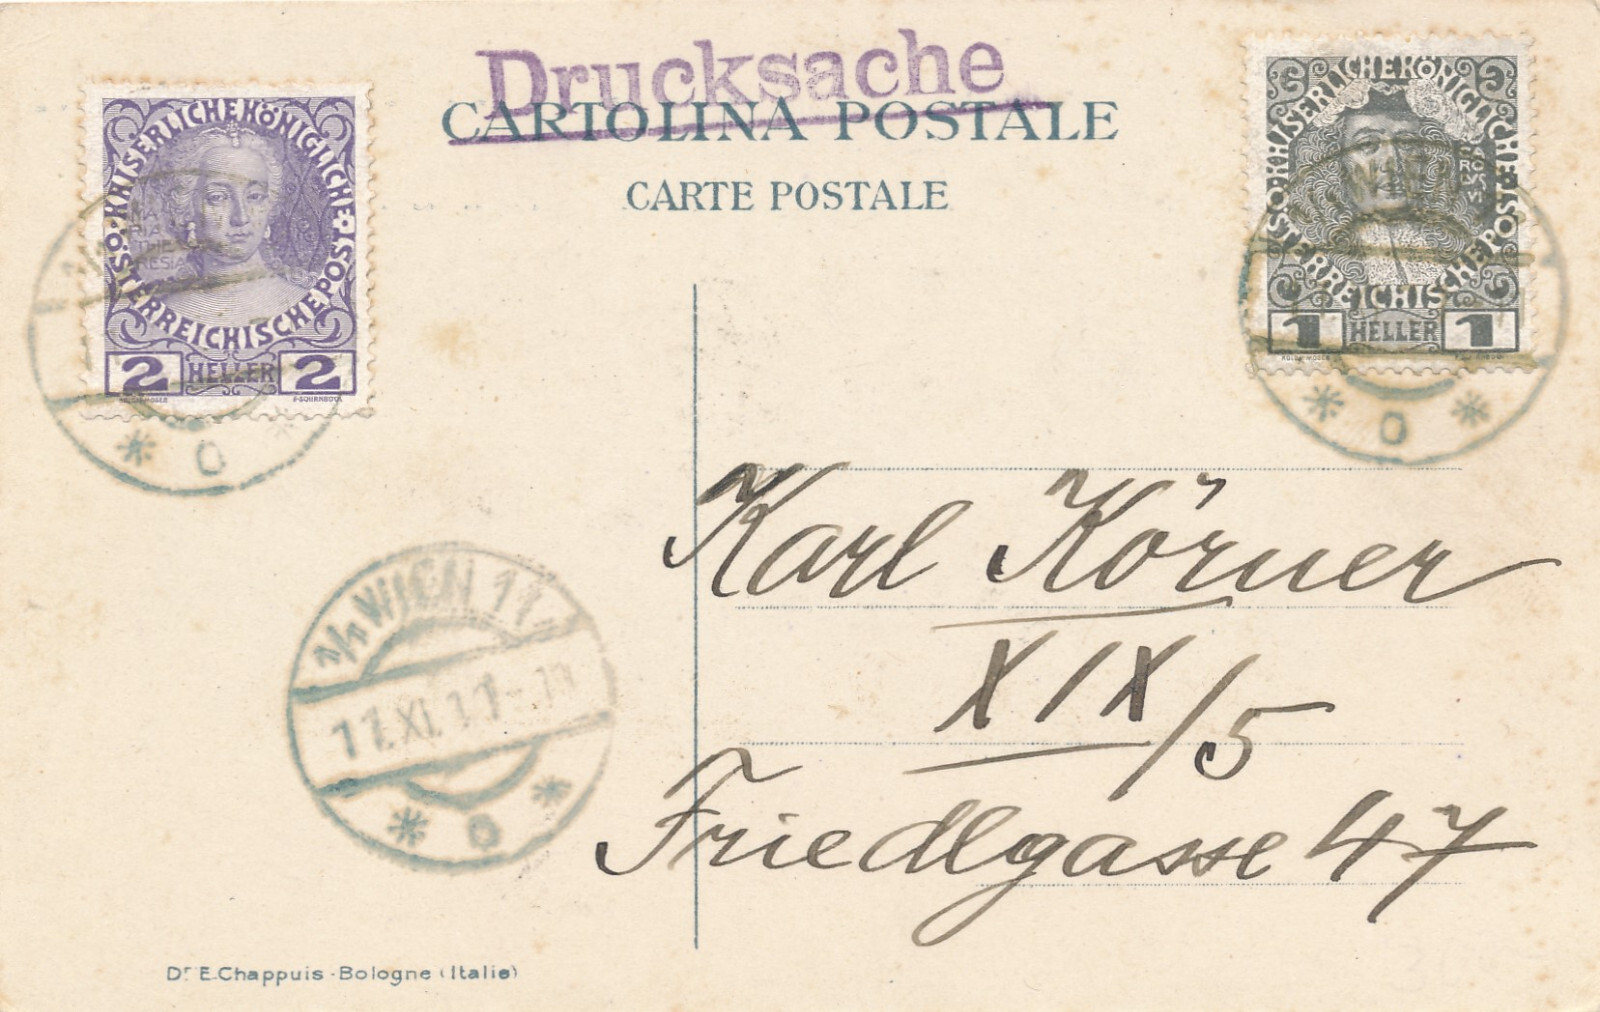 Drucksache
CARTOLINA POSTALE
CARTE POSTALE
KAISERLICHE KÖNIGLICHE ÖSTERREICHISCHE POST
MA
RIA
THE
RESIA
2 HELLER 2
KAISERLICHE KÖNIGLICHE ÖSTERREICHISCHE POST
CA
RO
1 HELLER 1
* O *
* O *
Karl Körner
XIX/5
Friedlgasse 47
1/1 WIEN 11
11.XI.11
* O *
Dr. E. Chappuis - Bologne (Italie)